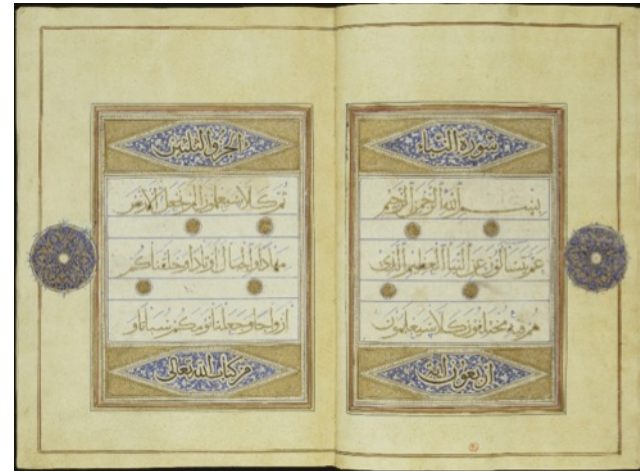 سورة النبأ
بسم الله الرحمن الرحيم
عم يتساءلون عن النبأ العظيم الذي
هم فيه مختلفون كلا سيعلمون
أربعون آية
الجزء الثلثون
ثم كلا سيعلمون ألم نجعل الأرض
مهادا والجبال أوتادا وخلقناكم
أزواجا وجعلنا نومكم سباتا و
من كتاب الله تعالى